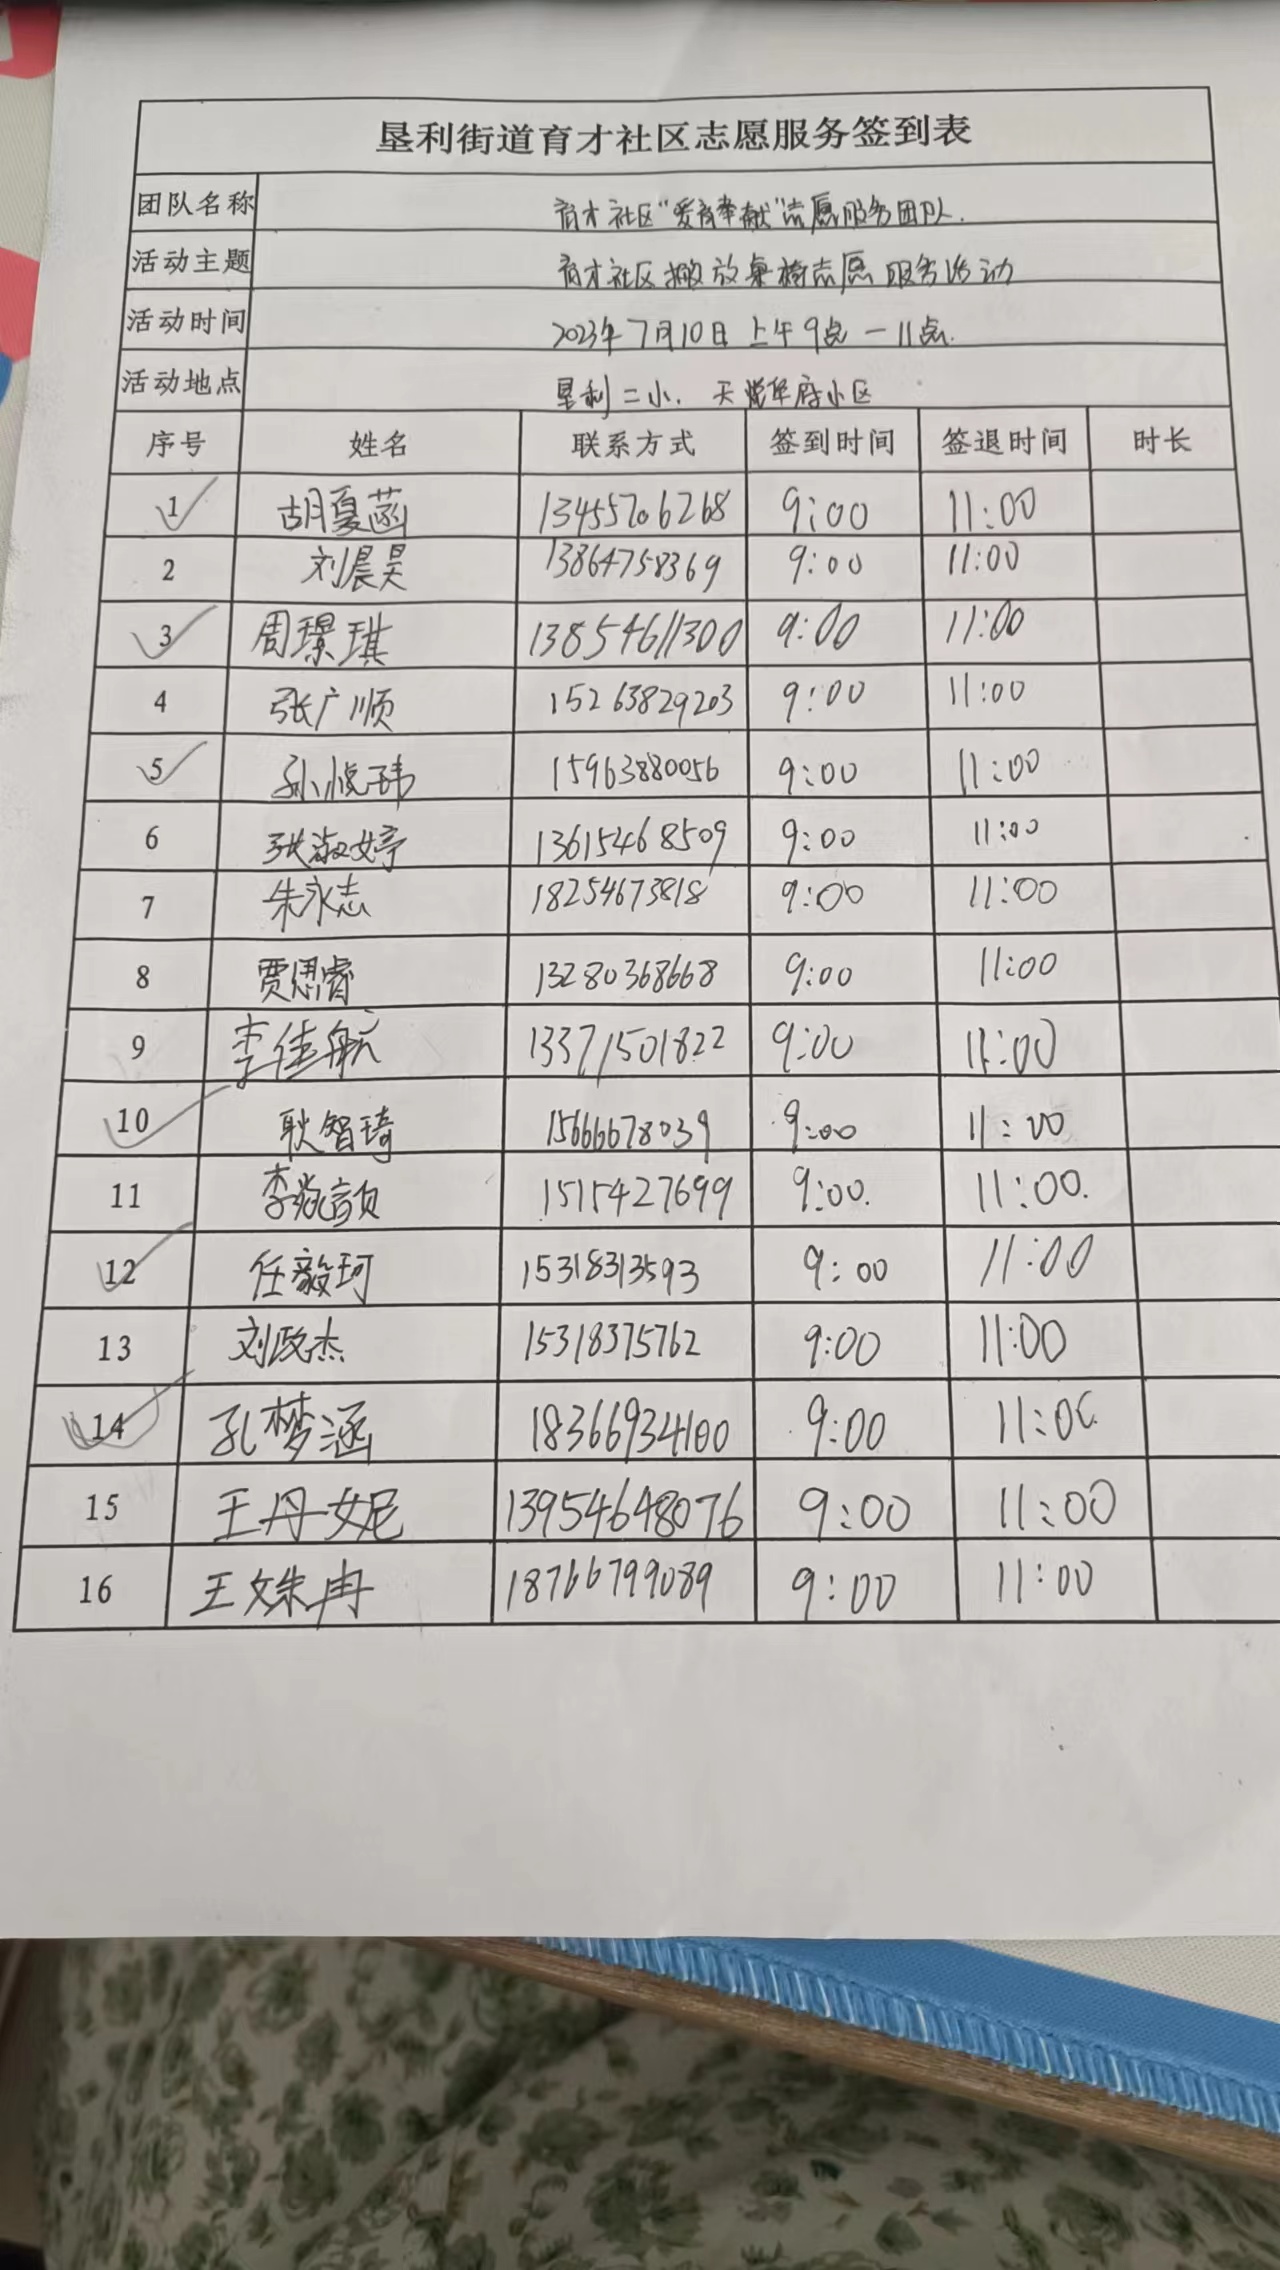 垦利街道育才社区志愿服务签到表
团队名称 育才社区“爱育奉献”志愿服务团队.
活动主题 育才社区搬放桌椅志愿服务活动
活动时间 2023年7月10日上午9点一11点.
活动地点 垦利二小. 天悦华府小区
序号 姓名 联系方式 签到时间 签退时间 时长
1 胡夏菡 13455706268 9:00 11:00
2 刘晨昊 13864758369 9:00 11:00
3 周璟琪 13854611300 9:00 11:00
4 张广顺 15263829203 9:00 11:00
5 孙悦玮 15963880056 9:00 11:00
6 张淑婷 13615468509 9:00 11:00
7 朱永志 18254673818 9:00 11:00
8 贾思睿 13280368668 9:00 11:00
9 李佳航 13371501822 9:00 11:00
10 耿智琦 15666678039 9:00 11:00
11 李颜 1515427699 9:00. 11:00.
12 任毅珂 15318313593 9:00 11:00
13 刘政杰 15318375762 9:00 11:00
14 孔梦涵 18366934100 9:00 11:00
15 王丹妮 13954648076 9:00 11:00
16 王姝冉 18766799089 9:00 11:00